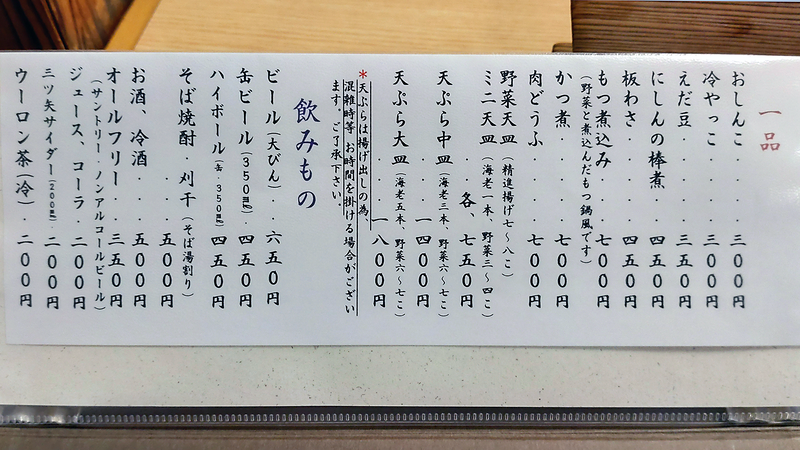 一品
おしんこ・・・三〇〇円
冷やっこ・・・三〇〇円
えだ豆・・・三五〇円
にしんの棒煮・・四五〇円
板わさ・・・四五〇円
もつ煮込み・・・七〇〇円
(野菜と煮込んだもつ鍋風です)
かつ煮・・・七〇〇円
肉どうふ・・・七〇〇円
野菜天皿(精進揚げ七〜八こ)
ミニ天皿(海老一本、野菜三〜四こ)
・・・各、七五〇円
天ぷら中皿(海老三本、野菜六〜七こ)
・・・一四〇〇円
天ぷら大皿(海老五本、野菜六〜七こ)
・・・一八〇〇円
*天ぷらは揚げ出しの為、
混雑時等 お時間を掛ける場合がござい
ます。ご了承下さい。
飲みもの
ビール(大びん)・・六五〇円
缶ビール(350㎖)・四五〇円
ハイボール(缶・350㎖)四五〇円
そば焼酎・刈干(そば湯割り)
・・・五〇〇円
お酒、冷酒・・・五〇〇円
オールフリー・・・三五〇円
(サントリー・ノンアルコールビール)
ジュース、コーラ・・二〇〇円
三ツ矢サイダー(200㎖)・二〇〇円
ウーロン茶(冷)・・二〇〇円